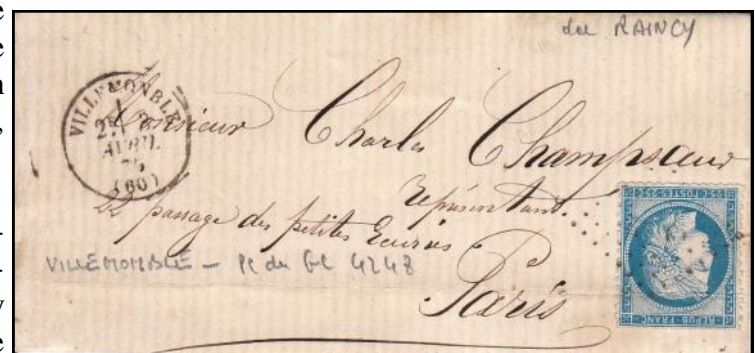 du RAINCY
VILLEMOMBLE
AVRIL
(60)
Monsieur Charles
Représentant
22 passage des petites Ecuries
VILLEMOMBLE - PC du GC 4248
Paris
25 C · POSTES · 25 C
REPUB · FRANC